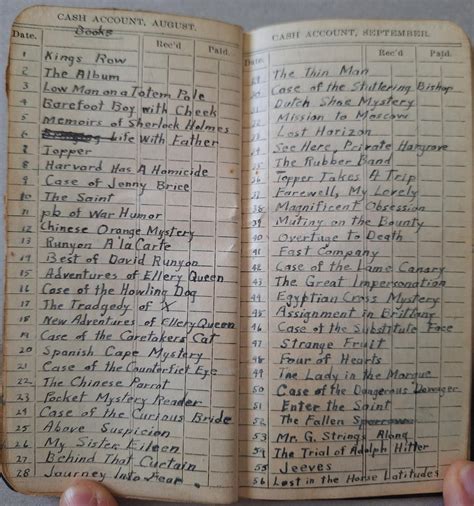 CASH ACCOUNT, AUGUST.
Books
Date. Rec'd Paid.
1 Kings Row
2 The Album
3 Low Man on a Totem Pole
4 Barefoot Boy with Cheek
5 Memoirs of Sherlock Holmes
6 Life with Father
7 Topper
8 Harvard Has A Homicide
9 Case of Jenny Brice
10 The Saint
11 pb of War Humor
12 Chinese Orange Mystery
13 Runyon A'la Carte
14 Best of David Runyon
15 Adventures of Ellery Queen
16 Case of the Howling Dog
17 The Tradgedy of X
18 New Adventures of Ellery Queen
19 Case of the Caretakers Cat
20 Spanish Cape Mystery
21 Case of the Counterfiet Eye
22 The Chinese Parrot
23 Pocket Mystery Reader
24 Case of the Curious Bride
25 Above Suspicion
26 My Sister Eileen
27 Behind That Curtain
28 Journey Into Fear
CASH ACCOUNT, SEPTEMBER.
Date. Rec'd Paid.
29 The Thin Man
30 Case of the Stuttering Bishop
31 Dutch Shoe Mystery
32 Mission to Moscow
33 Lost Horizon
34 See Here, Private Hargrove
35 The Rubber Band
36 Topper Takes A Trip
37 Farewell, My Lovely
38 Magnificent Obsession
39 Mutiny on the Bounty
40 Overture to Death
41 Fast Company
42 Case of the Lame Canary
43 The Great Impersonation
44 Egyptian Cross Mystery
45 Assignment in Brittany
46 Case of the Substitute Face
47 Strange Fruit
48 Four of Hearts
49 The Lady in the Morgue
50 Case of the Dangerous Dowager
51 Enter the Saint
52 The Fallen Sparrow
53 Mr. G. Strings Along
54 The Trial of Adolph Hitler
55 Jeeves
56 Lost in the Horse Latitudes